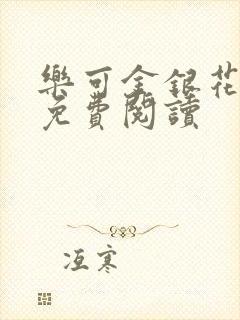 樂可金銀花
免費閱讀
冱寒